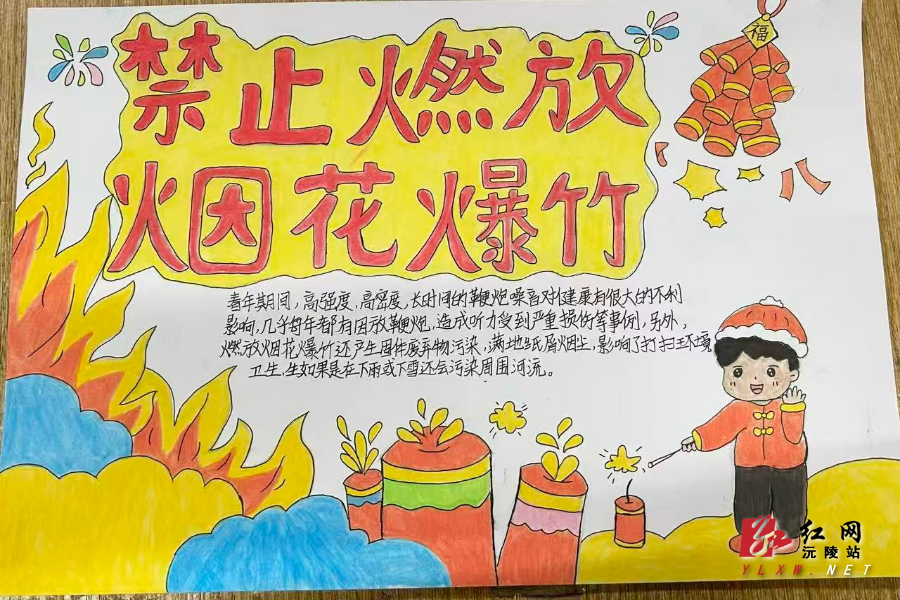 禁止燃放
烟花爆竹
福
春年期间,高强度、高密度、长时间的鞭炮噪音对健康有很大的不利
影响,几乎每年都有因放鞭炮,造成听力受到严重损伤等事例,另外,
燃放烟花爆竹还产生固体废弃物污染,满地纸屑烟尘,影响了打扫环境
卫生,生如果是在下雨或下雪还会污染周围河流。
红网
沅陵站
YLXW.NET